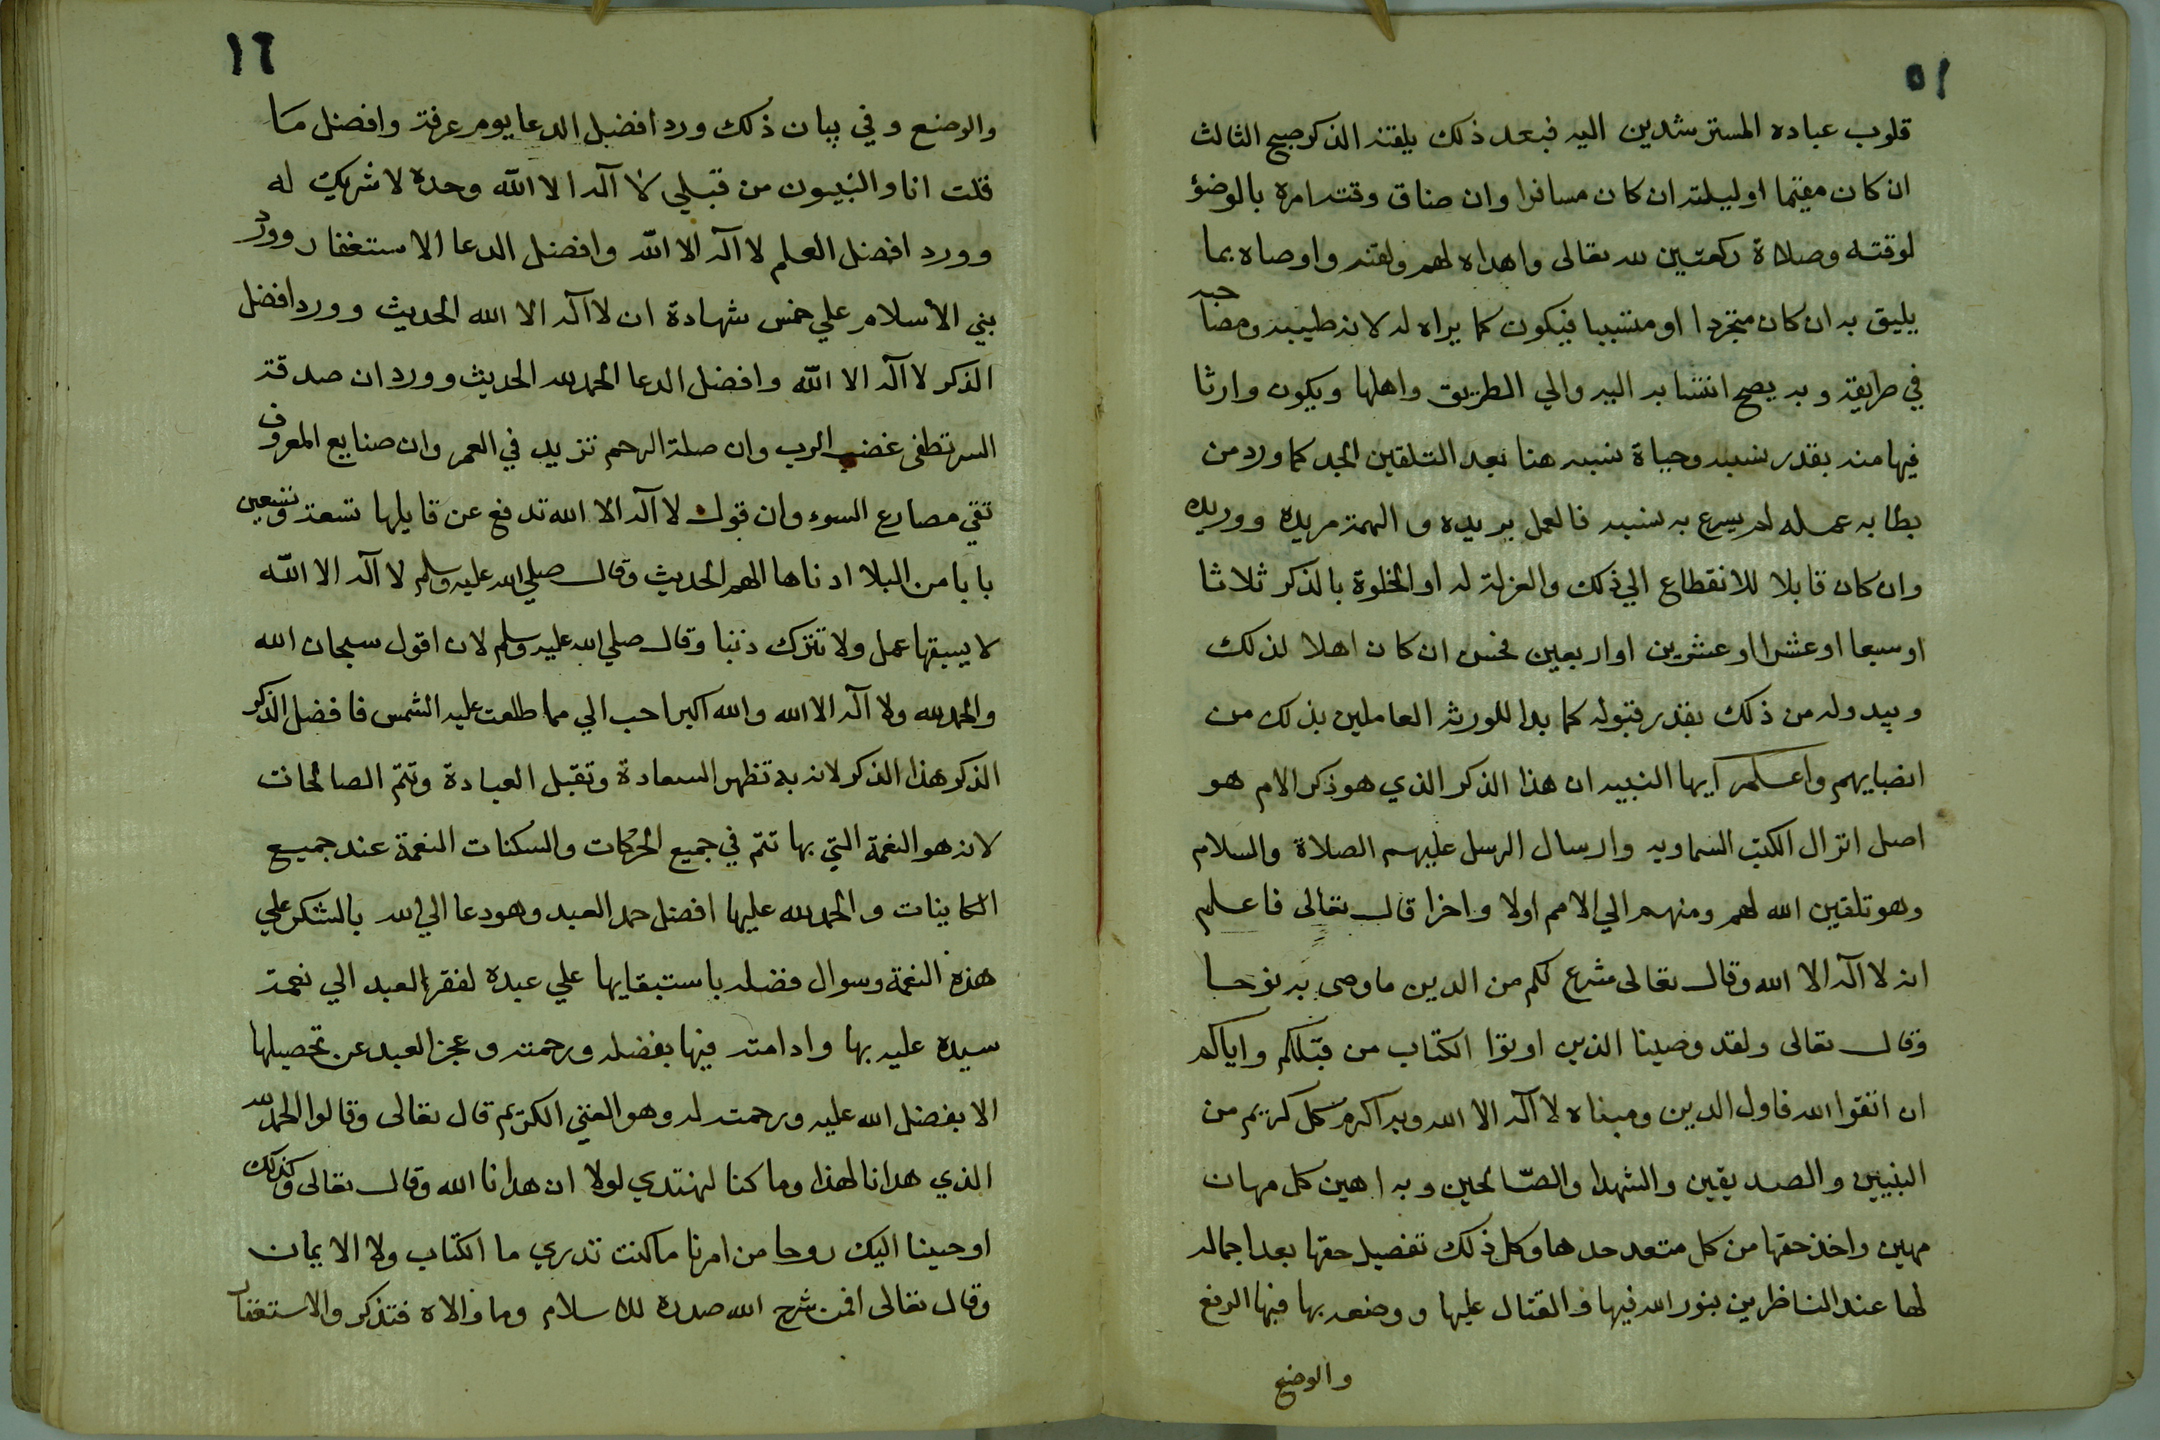 ١٥
قلوب عباده المسترشدين اليه فبعد ذلك يلقنه الذكر صبيح الثالث
ان كان مقيما او ليلته ان كان مسافرا وان ضاق وقته امره بالوضؤ
لوقته وصلاة ركعتين لله تعالى واهداه لهم ولقنه واوصاه بما
يليق به ان كان متجردا او متسببا فيكون كما يراه له لانه طبيبه ومصاحبه
في طريقة وبه يصح انتسابه اليه والي الطريق واهلها ويكون وارثا
فيها منه بقدر نسبه وحياة نسبه هنا بعد التلقين الجد كما ورد من
بطا به عمله لم يسرع به نسبه فالعمل بريده والهمة مريده ووريده
وان كان قابلا للانقطاع الي ذلك والعزلة له او الخلوة بالذكر ثلاثا
او سبعا او عشرا او عشرين او اربعين فحسن ان كان اهلا لذلك
ويبدوله من ذلك بقدر قبوله كما بدا للورثه العاملين بذلك من
انصبايهم واعلم ايها النبيه ان هذا الذكر الذي هو ذكر الامم هو
اصل انزال الكتب السماويه وارسال الرسل عليهم الصلاة والسلام
وهو تلقين الله لهم ومنهم الي الامم اولا واخرا قال تعالى فاعلم
انه لا اله الا الله وقال تعالى شرع لكم من الدين ما وصى به نوحا
وقال تعالى ولقد وصينا الذين اوتوا الكتاب من قبلكم واياكم
ان اتقوا الله فاول الدين ومبناه لا اله الا الله وبه اكرم كل كريم من
النبيين والصديقين والشهدا والصّالحين وبه اهين كل مهان
مهين واخذ حقها من كل متعد حدها وكل ذلك تفصيل حقها بعد اجماله
لها عند الناظرين بنور الله فيها والقتال عليها ووضعه بها فيها الرفع
والوضع
١٦
والوضع وفي بيان ذلك ورد افضل الدعا يوم عرفة وافضل ما
قلت انا والنبيون من قبلي لا اله الا الله وحده لا شريك له
وورد افضل العلم لا اله الا الله وافضل الدعا الاستغفار وورد
بني الاسلام علي خمس شهادة ان لا اله الا الله الحديث وورد افضل
الذكر لا اله الا الله وافضل الدعا الحمد لله الحديث وورد ان صدقة
السر تطفى غضب الرب وان صلة الرحم تزيد في العمر وان صنايع المعروف
تقي مصارع السوء وان قول لا اله الا الله تدفع عن قايلها تسعة وتسعين
بابا من البلا ادناها الهم الحديث وقال صلي الله عليه وسلم لا اله الا الله
لا يسبقها عمل ولا تترك ذنبا وقال صلي الله عليه وسلم لان اقول سبحان الله
والحمد لله ولا اله الا الله والله اكبر احب الي مما طلعت عليه الشمس فافضل الذكر
الذكر هذا الذكر لانه به تظهر السعادة وتقبل العبادة وتتم الصالحات
لانه هو النعمة التي بها تتم في جميع الحركات والسكنات النعمة عند جميع
الكاينات والحمد لله عليها افضل حمد العبد وهو دعا الي الله بالشكر علي
هذه النعمة وسوال فضله باستبقايها علي عبده لفقر العبد الي نعمة
سيده عليه بها وادامته فيها بفضله ورحمته وعجز العبد عن تحصيلها
الا بفضل الله عليه ورحمته له وهو الغني الكريم قال تعالى وقالوا الحمد لله
الذي هدانا لهذا وما كنا لنهتدي لولا ان هدانا الله وقال تعالى وكذلك
اوحينا اليك روحا من امرنا ما كنت تدري ما الكتاب ولا الايمان
وقال تعالى افمن شرح الله صدره للاسلام وما والاه فتذكر والاستغفار